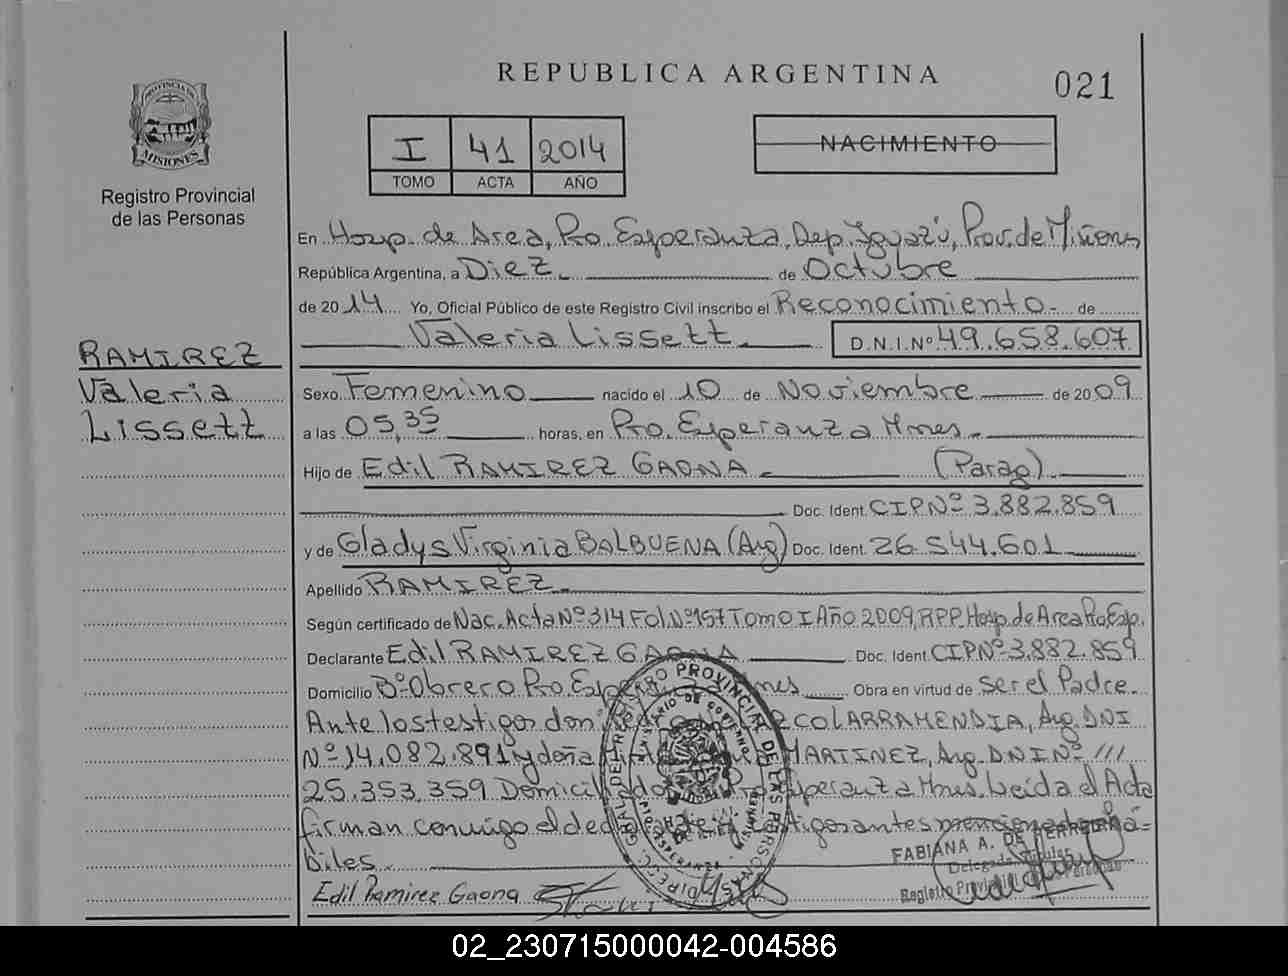 REPUBLICA ARGENTINA
021
PROVINCIA DE
MISIONES
Registro Provincial
de las Personas
I 41 2014
TOMO ACTA AÑO
NACIMIENTO
En Hosp. de Area, Pto. Esperanza, Dep. Iguazú, Prov. de Misiones
República Argentina, a Diez de Octubre
de 2014 Yo, Oficial Público de este Registro Civil inscribo el Reconocimiento de
Valeria Lissett D.N.I.Nº 49.658.607
RAMIREZ
Valeria
Lissett
Sexo Femenino nacido el 10 de Noviembre de 2009
a las 05,35 horas, en Pto. Esperanza Mnes.
Hijo de Edil RAMIREZ GAONA (Parag)
Doc. Ident. CIPNº 3.882.859
y de Gladys Virginia BALBUENA (Arg) Doc. Ident. 26.544.601
Apellido RAMIREZ
Según certificado de Nac. Acta Nº 314 Fol. Nº 157 Tomo I Año 2009, RPP. Hosp. de Area Pto Esp.
Declarante Edil RAMIREZ GAONA Doc. Ident. CIPNº 3.882.859
Domicilio Bº Obrero Pto. Mnes Obra en virtud de ser el Padre.
Ante los testigos don LARRAMENDIA, Arg. DNI
Nº 14.082.891 y doña MARTINEZ, Arg. D.N.I Nº ///
25.353.359 Domiciliados Esperanza Mnes. Leída el Acta
firman conmigo el testigos antes mencionados há=
biles.
DIRECC. GRAL. DEL REGISTRO PROVINCIAL DE LAS PERSONAS
MINISTERIO DE GOBIERNO
PTO. ESPERANZA
FABIANA A. DE HERRERA
Delegada Titular
Registro Provincial de las Personas
Edil Ramirez Gaona
02_230715000042-004586